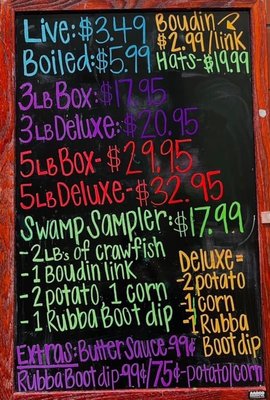 Live: $3.49
Boudin
$2.99/link
Boiled: $5.99
Hats - $19.99
3LB Box: $17.95
3LB Deluxe: $20.95
5LB Box - $29.95
5LB Deluxe - $32.95
Swamp Sampler: $17.99
- 2 LB's of crawfish
- 1 Boudin link
- 2 potato, 1 corn
- 1 Rubba Boot dip
Deluxe =
- 2 potato
- 1 corn
- 1 Rubba
Boot dip
Extras: Butter Sauce - 99¢
Rubba Boot dip - 99¢/75¢ - potato/corn